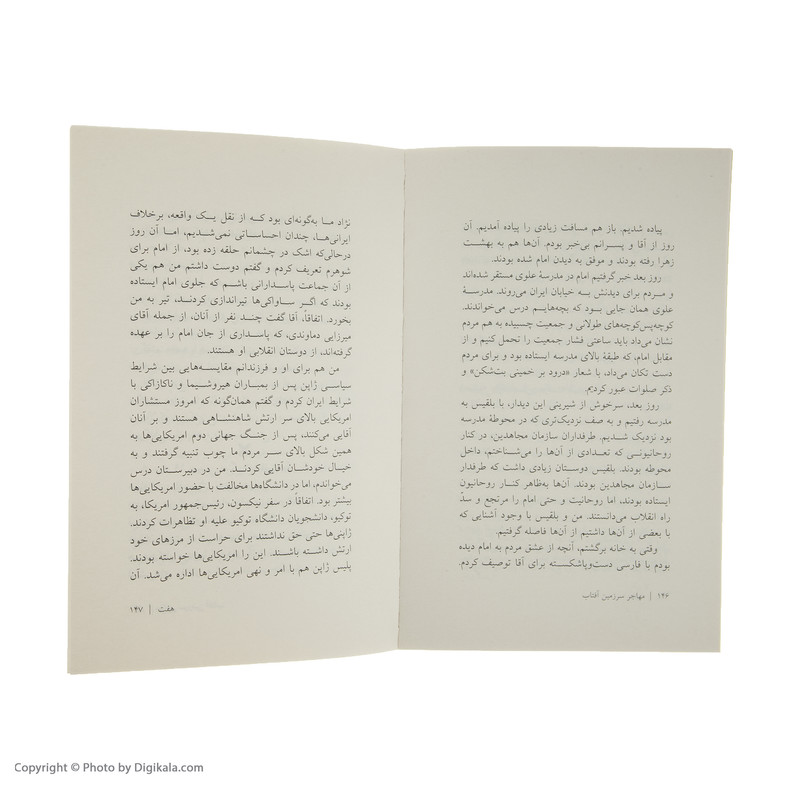 پیاده شدیم. باز هم مسافت زیادی را پیاده آمدیم. آن
روز از آقا و پسرانم بی‌خبر بودم. آن‌ها هم به بهشت
زهرا رفته بودند و موفق به دیدن امام شده بودند.
روز بعد خبر گرفتیم امام در مدرسهٔ علوی مستقر شده‌اند
و مردم برای دیدنش به خیابان ایران می‌روند. مدرسهٔ
علوی همان جایی بود که بچه‌هایم درس می‌خواندند.
کوچه‌پس‌کوچه‌های طولانی و جمعیت چسبیده به هم مردم
نشان می‌داد باید ساعتی فشار جمعیت را تحمل کنیم و از
مقابل امام، که طبقهٔ بالای مدرسه ایستاده بود و برای مردم
دست تکان می‌داد، با شعار «درود بر خمینی بت‌شکن» و
ذکر صلوات عبور کردیم.
روز بعد، سرخوش از شیرینی این دیدار، با بلقیس به
مدرسه رفتیم و به صف نزدیک‌تری که در محوطهٔ مدرسه
بود نزدیک شدیم. طرفداران سازمان مجاهدین، در کنار
روحانیونی که تعدادی از آن‌ها را می‌شناختم، داخل
محوطه بودند. بلقیس دوستان زیادی داشت که طرفدار
سازمان مجاهدین بودند. آن‌ها به‌ظاهر کنار روحانیون
ایستاده بودند، اما روحانیت و حتی امام را مرتجع و سدّ
راه انقلاب می‌دانستند. من و بلقیس با وجود آشنایی که
با بعضی از آن‌ها داشتیم از آن‌ها فاصله گرفتیم.
وقتی به خانه برگشتم، آنچه از عشق مردم به امام دیده
بودم با فارسی دست‌وپاشکسته برای آقا توصیف کردم.
۱۴۶ | مهاجر سرزمین آفتاب
نژاد ما به‌گونه‌ای بود که از نقل یک واقعه، برخلاف
ایرانی‌ها، چندان احساساتی نمی‌شدیم، اما آن روز
درحالی‌که اشک در چشمانم حلقه زده بود، از امام برای
شوهرم تعریف کردم و گفتم دوست داشتم من هم یکی
از آن جماعت پاسدارانی باشم که جلوی امام ایستاده
بودند که اگر ساواکی‌ها تیراندازی کردند، تیر به من
بخورد. اتفاقاً، آقا گفت چند نفر از آنان، از جمله آقای
میرزایی دماوندی، که پاسداری از جان امام را بر عهده
گرفته‌اند، از دوستان انقلابی او هستند.
من هم برای او و فرزندانم مقایسه‌هایی بین شرایط
سیاسی ژاپن پس از بمباران هیروشیما و ناکازاکی با
شرایط ایران کردم و گفتم همان‌گونه که امروز مستشاران
امریکایی بالای سر ارتش شاهنشاهی هستند و بر آنان
آقایی می‌کنند، پس از جنگ جهانی دوم امریکایی‌ها به
همین شکل بالای سر مردم ما چوب تنبیه گرفتند و به
خیال خودشان آقایی کردند. من در دبیرستان درس
می‌خواندم، اما در دانشگاه‌ها مخالفت با حضور امریکایی‌ها
بیشتر بود. اتفاقاً در سفر نیکسون، رئیس‌جمهور امریکا، به
توکیو، دانشجویان دانشگاه توکیو علیه او تظاهرات کردند.
ژاپنی‌ها حتی حق نداشتند برای حراست از مرزهای خود
ارتش داشته باشند. این را امریکایی‌ها خواسته بودند.
پلیس ژاپن هم با امر و نهی امریکایی‌ها اداره می‌شد. آن
هفت | ۱۴۷
Copyright © Photo by Digikala.com